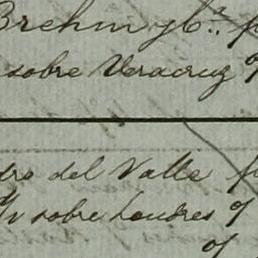 Brehm y Ca.
sobre Veracruz
dro del Valle
sobre Londres